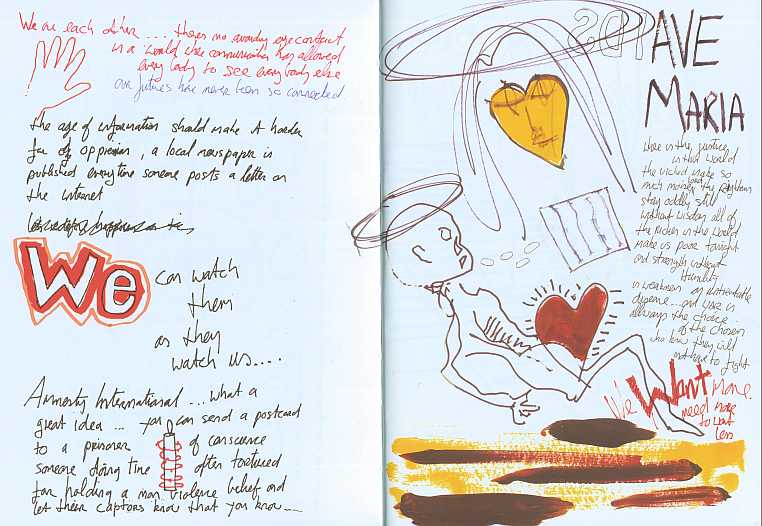 We are each other .... theres no avoiding eye contact
in a world where communication has allowed
every body to see every body else
our futures have never been so connected
the age of information should make it harder
for oppression, a local newspaper is
published everytime someone posts a letter on
the internet
We can watch
them
as they
watch us....
Amnesty International ... what a
great idea ... you can send a postcard
to a prisoner of conscience
someone doing time often tortured
for holding a non violence belief and
let their captors know that you know ....
AVE
MARIA
where is the justice
in this world
the wicked make so
much noise, the righteous
stay oddly still
without wisdom all of
the riches in the world
make us poor tonight
and strength without
Humility
is weakness
and war is
always the choice
of the chosen
who know they will
not have to fight
We Want More.
need more
to want
less